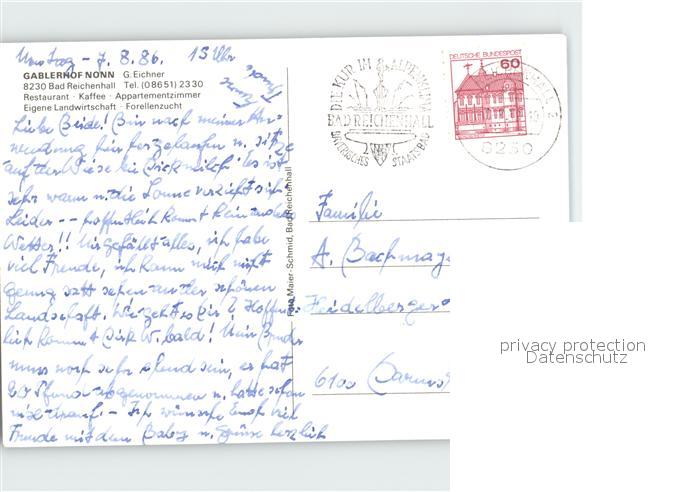 7.8.86. 13 Uhr
GABLERHOF NONN G. Eichner
8230 Bad Reichenhall Tel. (08651) 2330
Restaurant · Kaffee · Appartementzimmer
Eigene Landwirtschaft · Forellenzucht
Liebe Beide! Bin nach meiner An-
wendung hin u. sitze
auf der Wiese bei Dickmilch. Es ist
sehr warm u. die Sonne verzieht sich
leider -- hoffentlich kommt kein anderes
Wetter!! Mir gefällt alles, ich habe
viel Freude, ich kann mich nicht
genug satt sehen an der schönen
Landschaft. Wie geht es Dir? Hoffent-
lich kommt Dirk W. bald! Mein Bruder
muss noch sehr elend sein, er hat
20 Pfund abgenommen u. hatte schon
- Ich wünsche Euch viel
Freude mit dem u. Grüsse herzlich
Foto Maier-Schmid, Bad Reichenhall
DIE KUR IM ALPENKLIMA
BAD REICHENHALL
BAYERISCHES STAATSBAD
DEUTSCHE BUNDESPOST
60
8230
Familie
A. Bachmay
Heidelberger
6100 Darms
privacy protection
Datenschutz